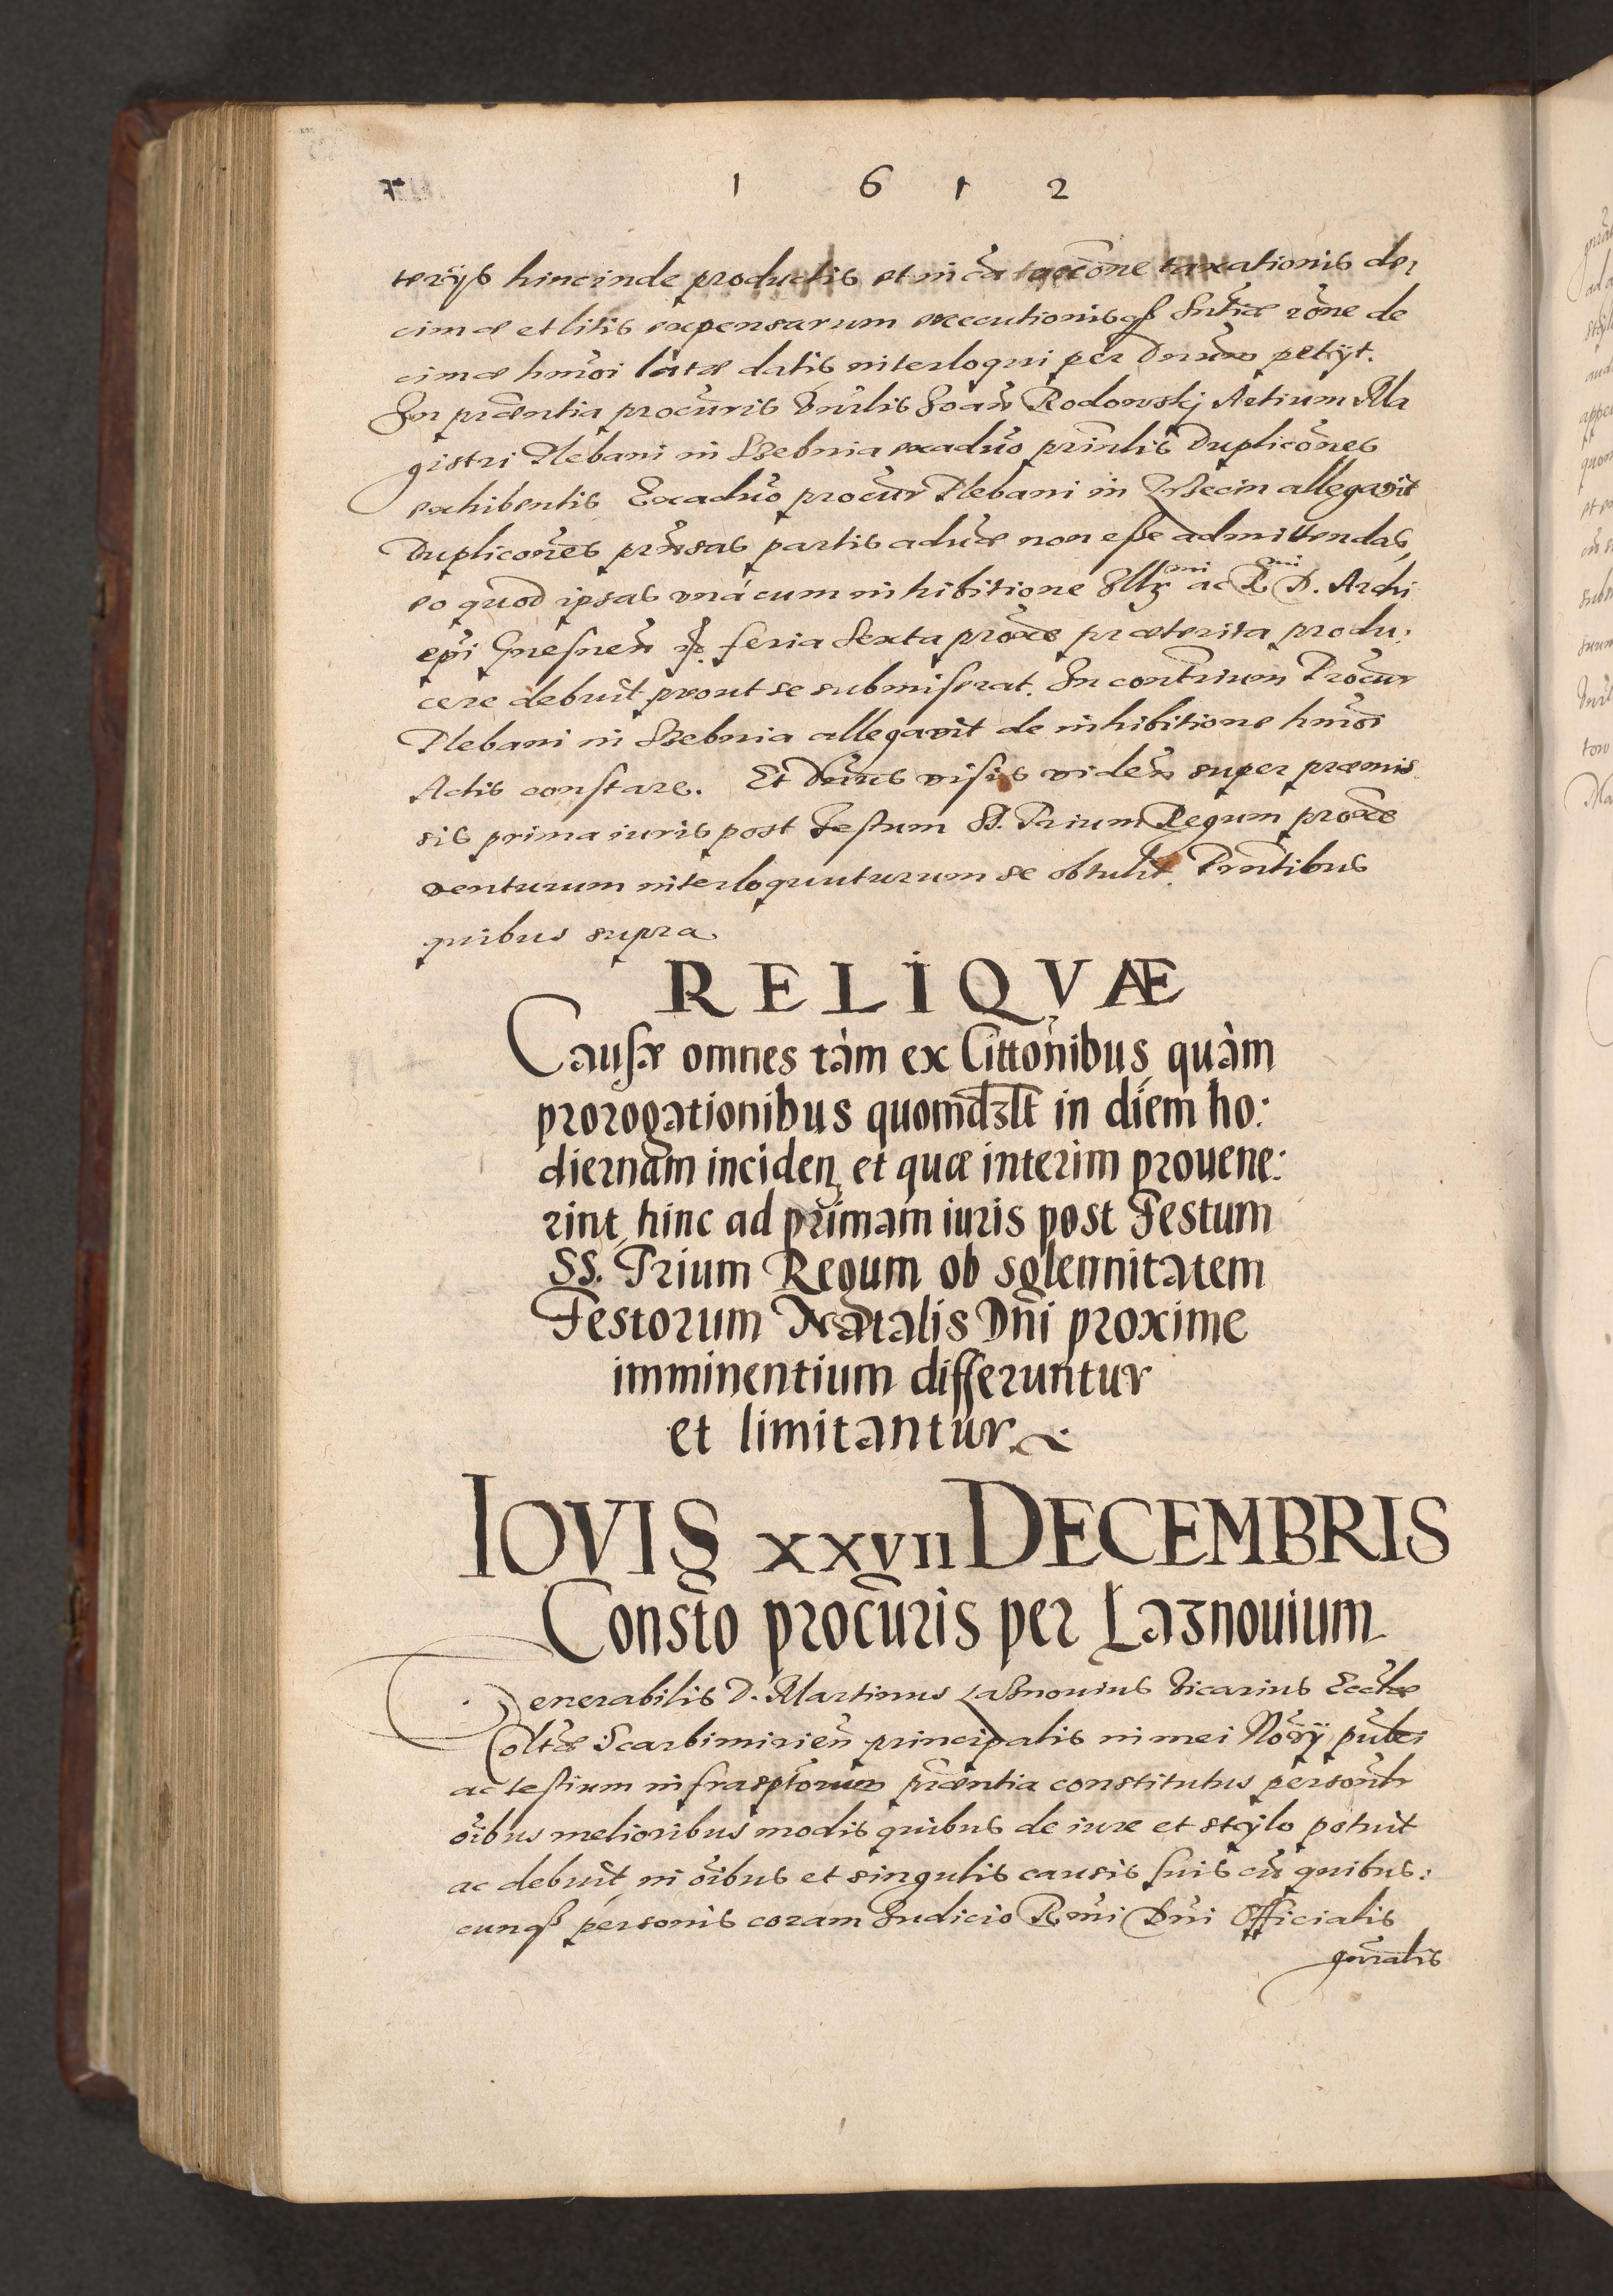 1 6 1 2
terijs hincinde productis et in ca taxatione taxationis de,
cimæ et litis expensarum executionisqß Sntiæ rône de
cimæ hmõi latæ datis interloqui per Dnum petijt.
In præntia procuris Dnrlis Joan Rodowskj Artium Ma
gistri Plebani in Szebnia exaduo prinlis Duplicônes
exhibentis Exaduo procur Plebani in allegavit
Duplicones prnsas partis aduæ non eße admittendas,
eo quod ipsas vná cum inhibitione Illr mi ac R mi D. Archi
epi Gnesnen feria Sexta proxe præterita produ:
cere debuit prout se submiserat. In contrium Procur
Plebani in Szebnia allegavit de inhibitione hmõi
Actis constare. Et Dnus visis viden super præmis
sis prima iuris post Festum SS. Trium Regum proxe
venturum interloquuturum se obtulit. Prntibus
quibus supra
RELIQVÆ
Causæ omnes tàm ex Cittonibus quàm
prorogationibus quomdzlt in diem ho:
diernam inciden et quæ interim prouene:
rint, hinc ad primam iuris post Festum
SS. Trium Regum ob solennitatem
Festorum Natalis Dni proxime
imminentium differuntur
et limitantur.
IOVIS XXVII DECEMBRIS
Consto procuris per Laznouium
Venerabilis D. Martinus Laznouius Vicarius Eccliæ
Coltæ Scarbimirien principalis in mei Norij publci
ac testium infrasptorum præntia constitutus personlr
oibus melioribus modis quibus de iure et stylo potuit
ac debuit, in oibus et singulis causis suis cu quibus:
cunqß personis coram Iudicio Rmi Dni Officialis
gnralis